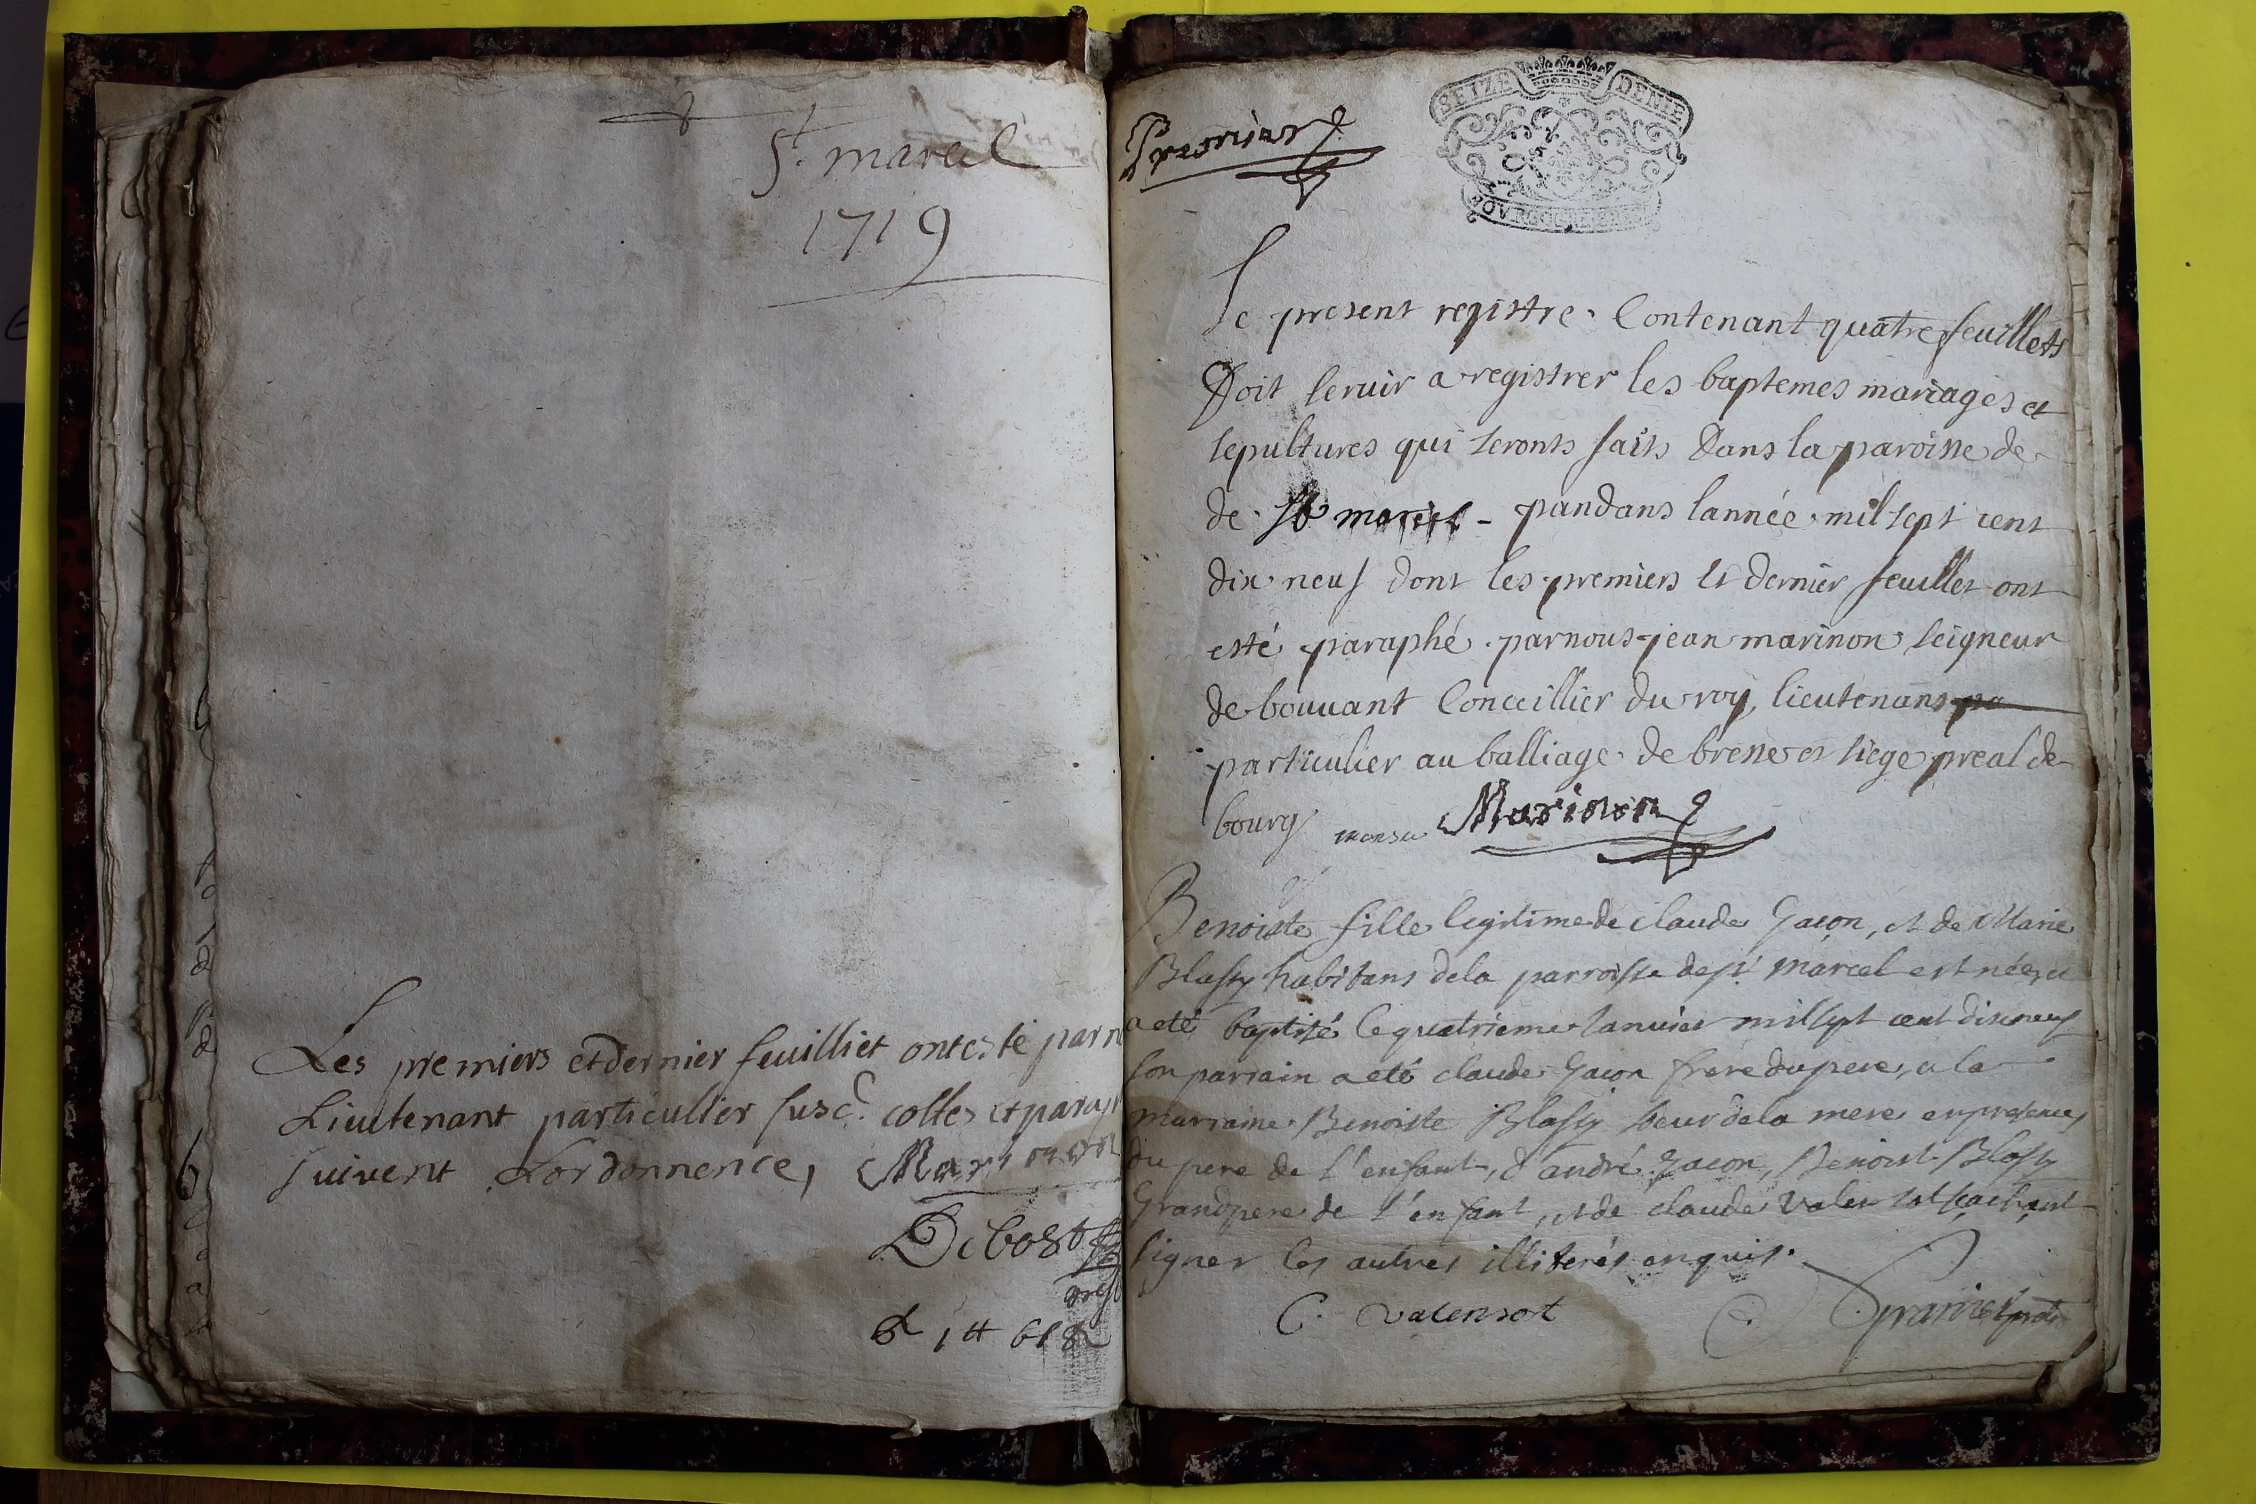 St. marcel
1719
Les premiers et dernier feuilliet ont esté par n
Lieutenant particullier susd. cottes et parap
suivent Lordonnence, Marinon
Debost
Premier
SEIZE DENIE
Le present registre Contenant quatre feuillets
Doit seruir a registrer les baptemes mariages et
sepultures qui seronts faits Dans la paroisse de
de St marcel - pandans lannée mil sept cent
dix neuf dont les premiers et dernier feuillet ont
esté paraphé par nous jean marinon seigneur
de bouuant Conceillier du roy, lieutenant pa
particulier au balliage de bresse et siege preal de
bourg Marinon
Benoiste fille legitime de claude Gacon, et de Marie
Blassy habitans de la parroisse de st. Marcel est née, et
a eté baptisé le quatrieme Ianuier mil sept cent dix neuf
son parrain a eté claude Gacon frere du pere, a la
marraine Benoiste Blassy soeur de la mere en presences
du pere de l'enfant, d'andré Gacon, Benoist Blassy
Grand pere de l'enfant, et de claude valensot sachant
signer les autres illiterés enquis.
C. valensot